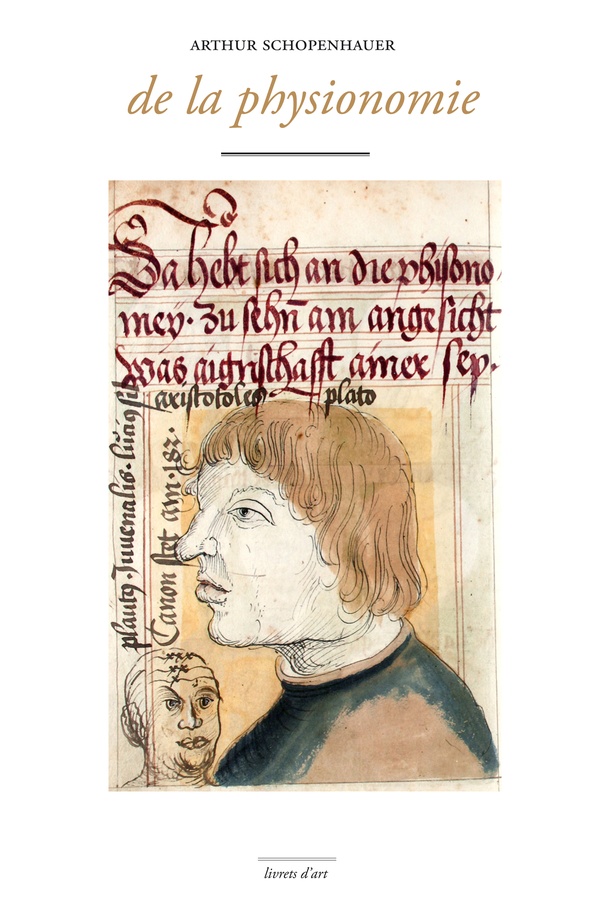 ARTHUR SCHOPENHAUER
de la physionomie
Da hebt sich an die phisono
mey· Zu sehn̄ am angesicht
was aignschafft ainer sey·
aristotoles plato
plautq · Juuenalis · luciq
Canon stet am · 182 ·
livrets d'art